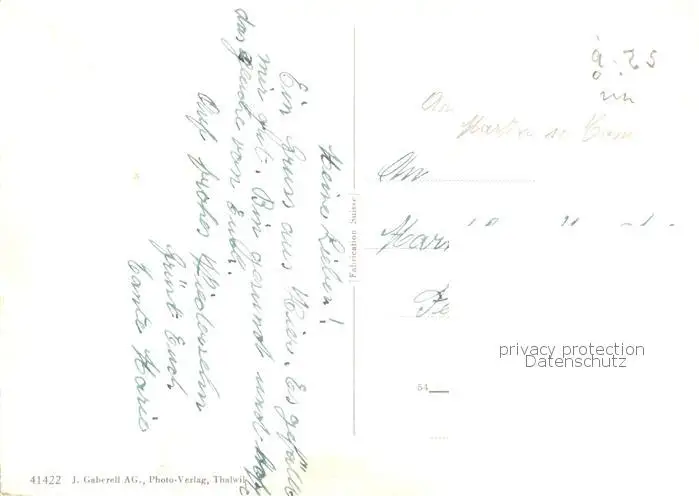 Meine Lieben!
Ein Gruss aus Hier. Es gefällt
mir gut. Bin gesund und hoffe
das gleiche von Euch.
Auf frohes Wiedersehn
Grüst Euch
Tante Marie
An
An
Fabrication Suisse
54
privacy protection
Datenschutz
41422 J. Gaberell AG., Photo-Verlag, Thalwil